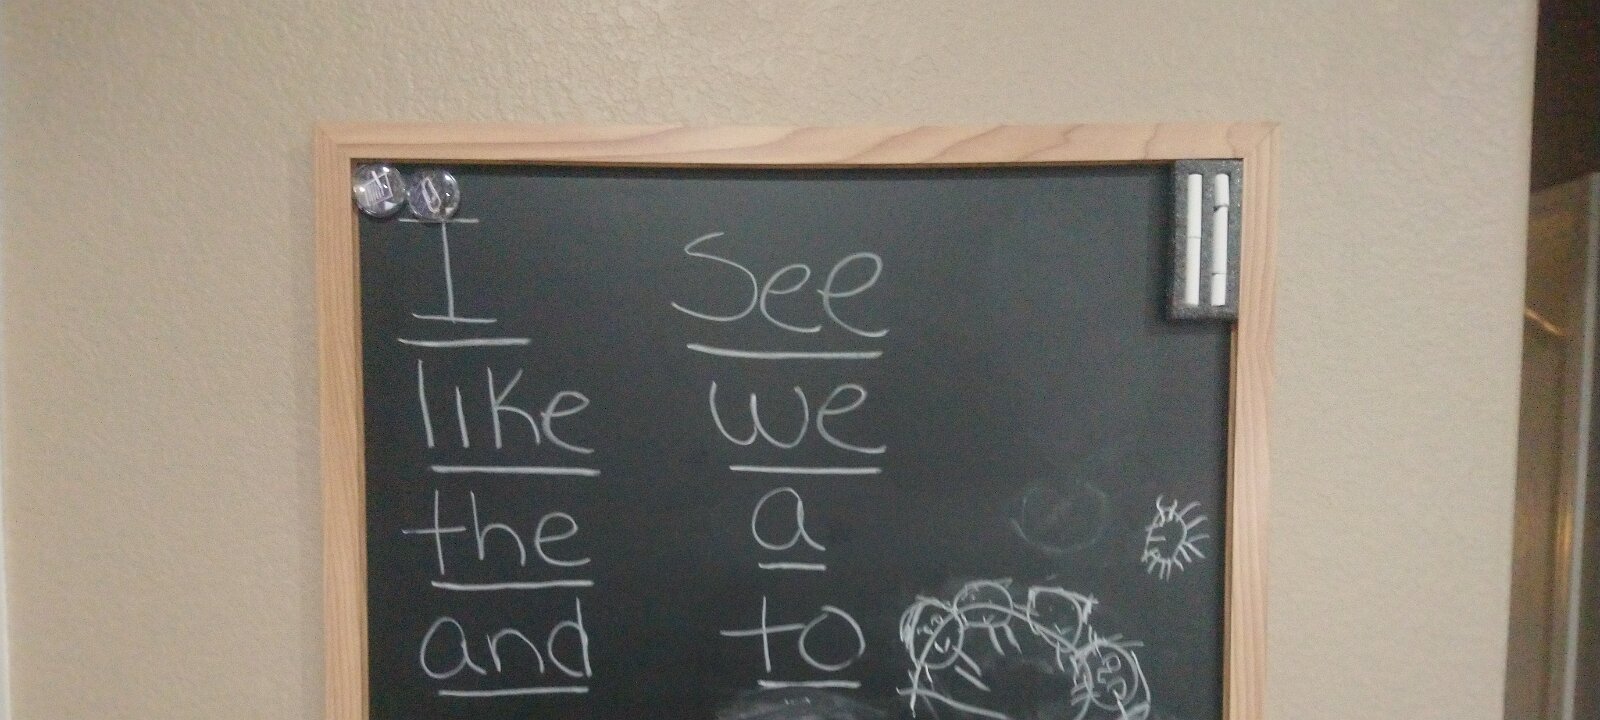 I
like
the
and
See
we
a
to